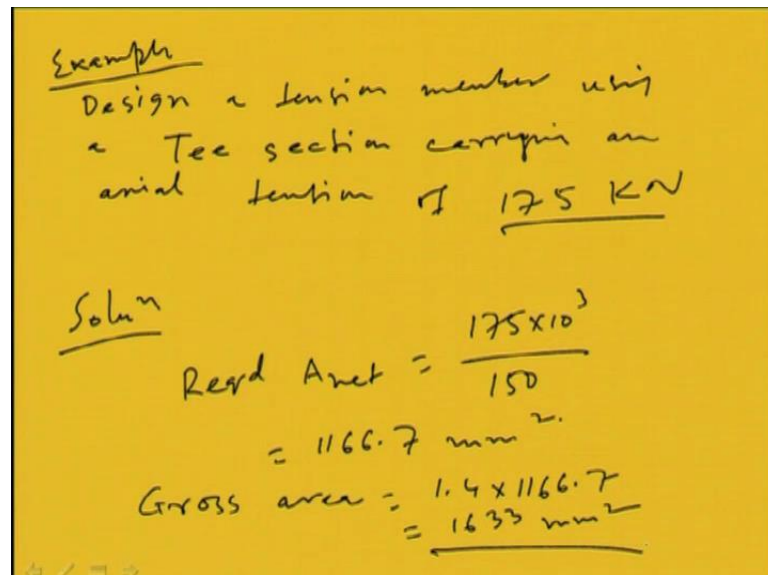 Example
Design a tension member using
a Tee section carrying an
axial tension of 175 KN
Soluⁿ
Reqd Anet = 175×10³
150
= 1166.7 mm².
Gross area = 1.4 × 1166.7
= 1633 mm²